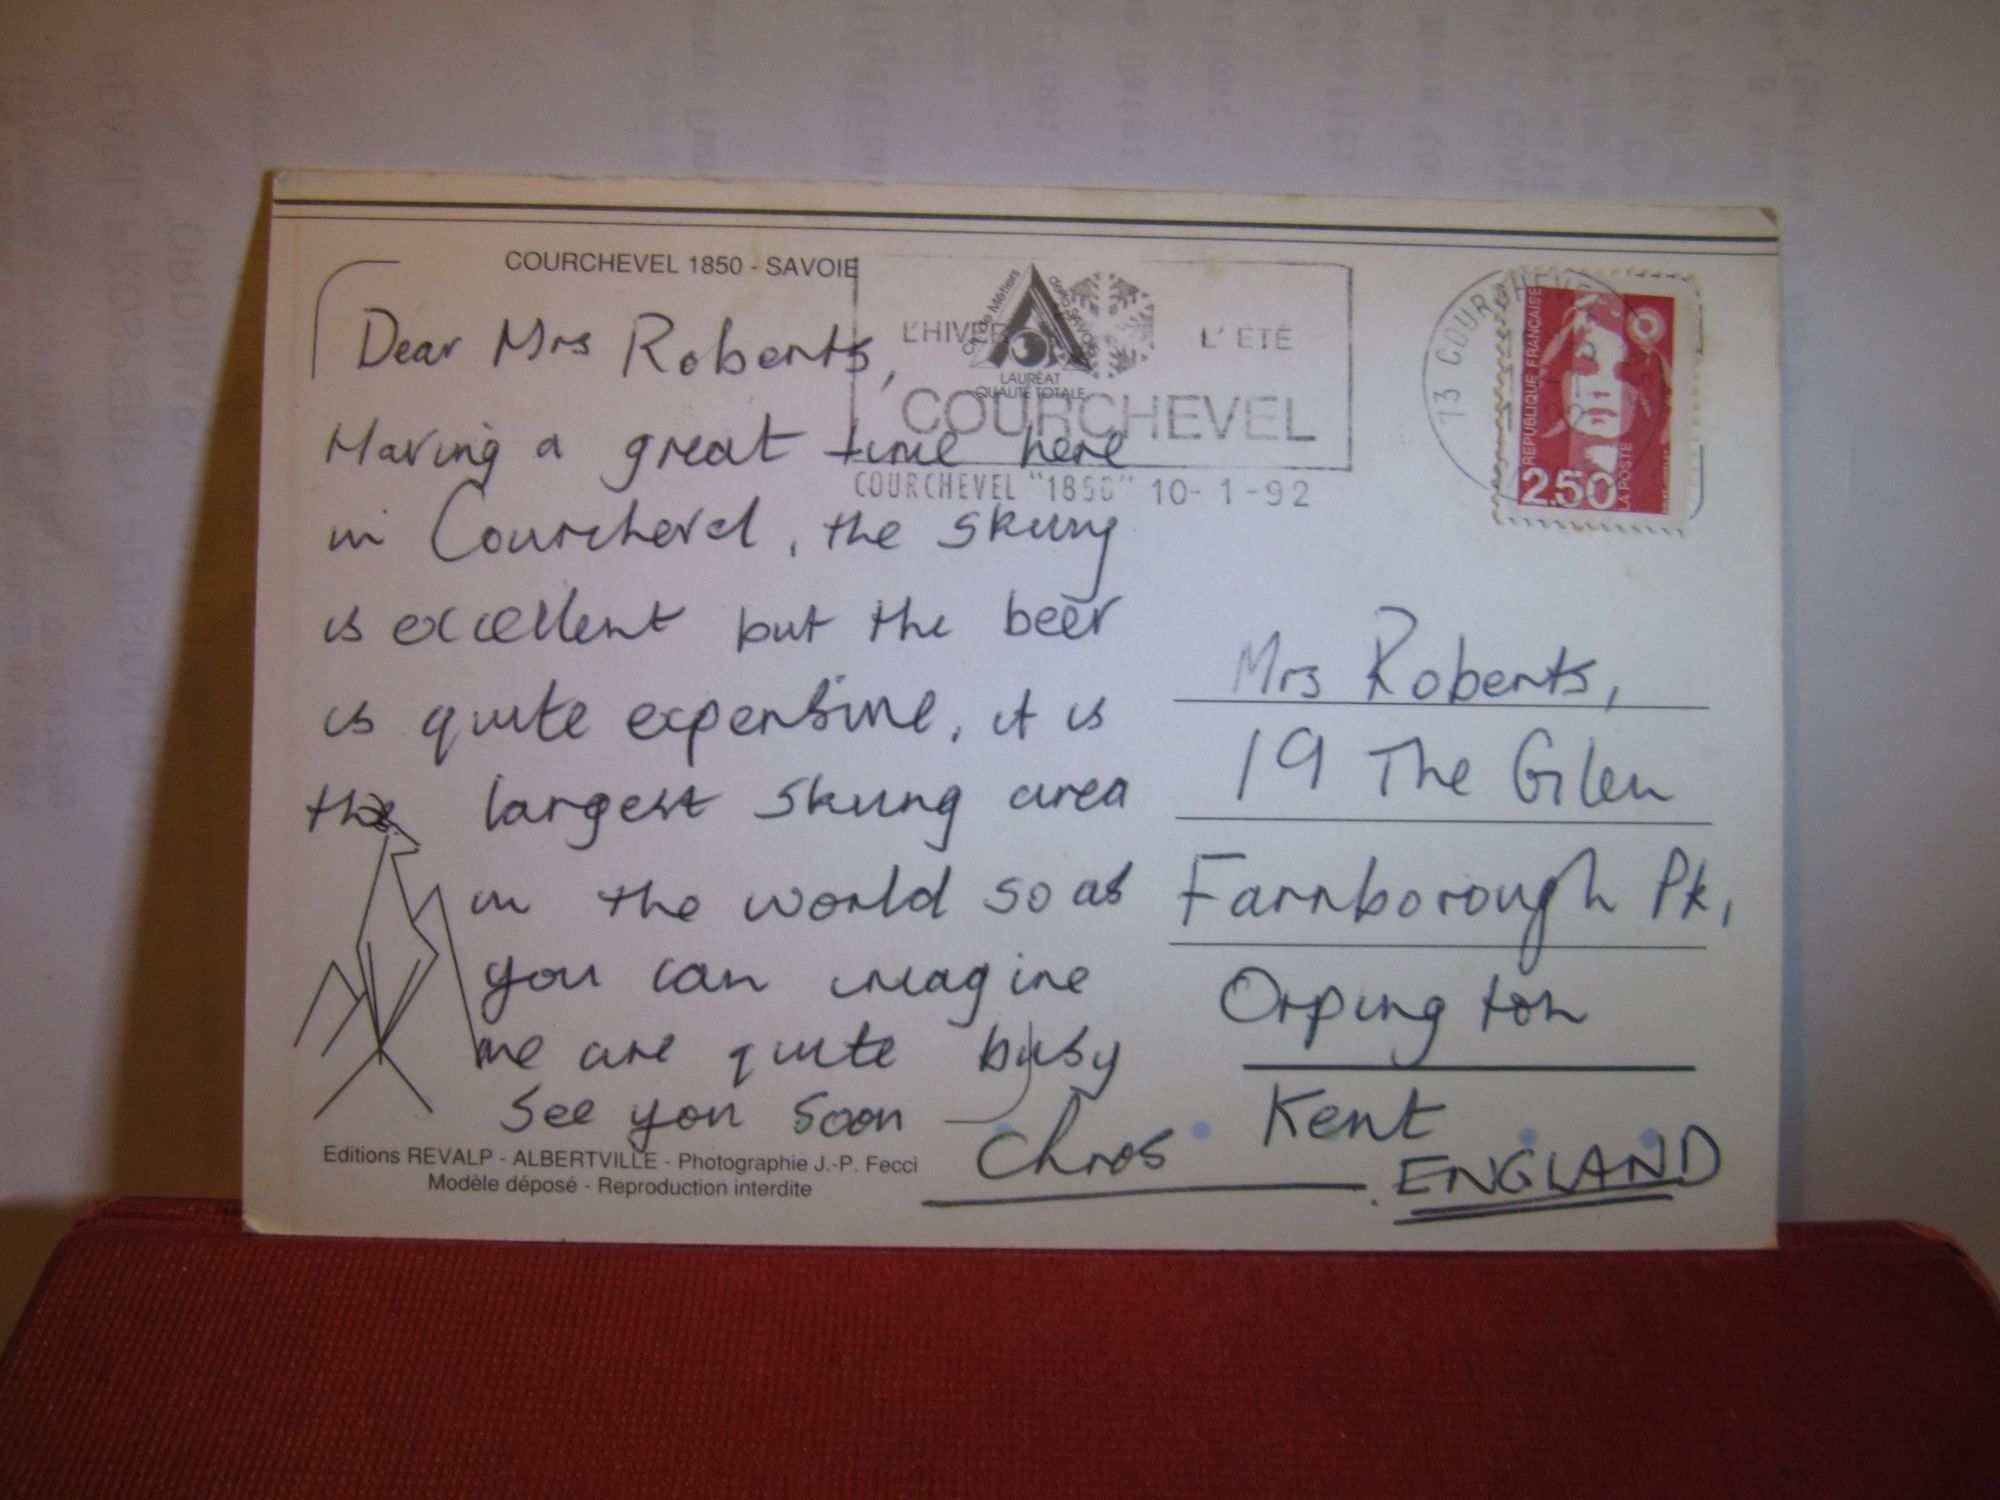 COURCHEVEL 1850 - SAVOIE
Dear Mrs Roberts,
Having a great time here
in Courchevel, the skiing
is excellent but the beer
is quite expensive, it is
the largest skiing area
in the world so as
you can imagine
we are quite busy
See you soon
Chris
Editions REVALP - ALBERTVILLE - Photographie J.-P. Fecci
Modèle déposé - Reproduction interdite
L'HIVER L'ÉTÉ
LAURÉAT
QUALITÉ TOTALE
COURCHEVEL
COURCHEVEL "1850" 10-1-92
73 COURCHEVEL
REPUBLIQUE FRANÇAISE
2.50
LA POSTE
Mrs Roberts,
19 The Glen
Farnborough Pk,
Orpington
Kent
ENGLAND